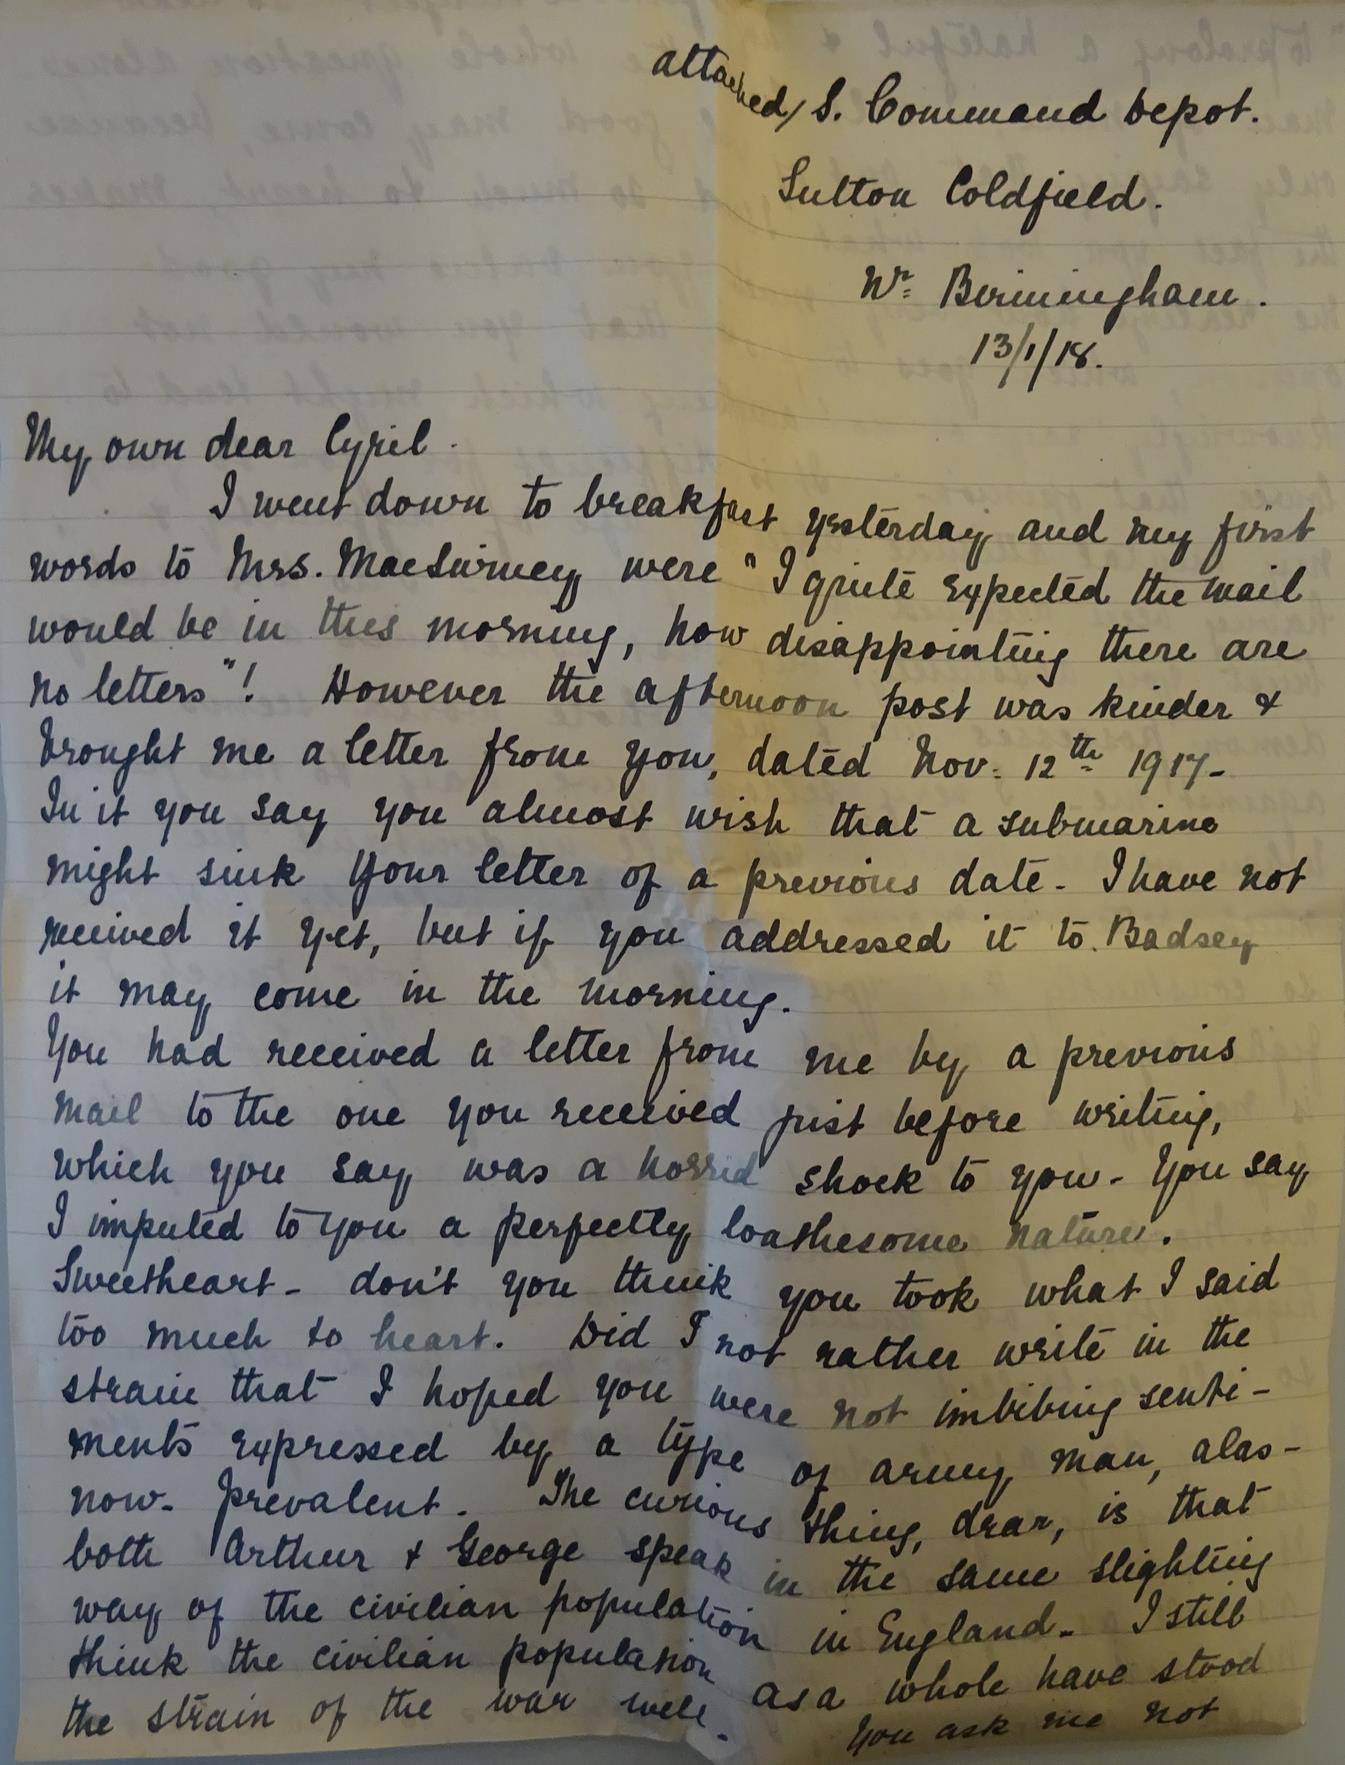 attached / S. Command Depot.
Sutton Coldfield.
Nr. Birmingham.
13/1/18.
My own dear Cyril.
I went down to breakfast yesterday and my first
words to Mrs. MacSwiney were "I quite expected the mail
would be in this morning, how disappointing there are
no letters"! However the afternoon post was kinder &
brought me a letter from you, dated Nov. 12th 1917-
In it you say you almost wish that a submarine
might sink your letter of a previous date - I have not
received it yet, but if you addressed it to Badsey
it may come in the morning.
You had received a letter from me by a previous
mail to the one you received just before writing,
which you say was a horrid shock to you - You say
I imputed to you a perfectly loathesome nature.
Sweetheart - don't you think you took what I said
too much to heart. Did I not rather write in the
strain that I hoped you were not imbibing senti-
ments expressed by a type of army man, alas -
now - prevalent. The curious thing, dear, is that
both Arthur & George speak in the same slighting
way of the civilian population in England - I still
think the civilian population as a whole have stood
the strain of the war well. You ask me not